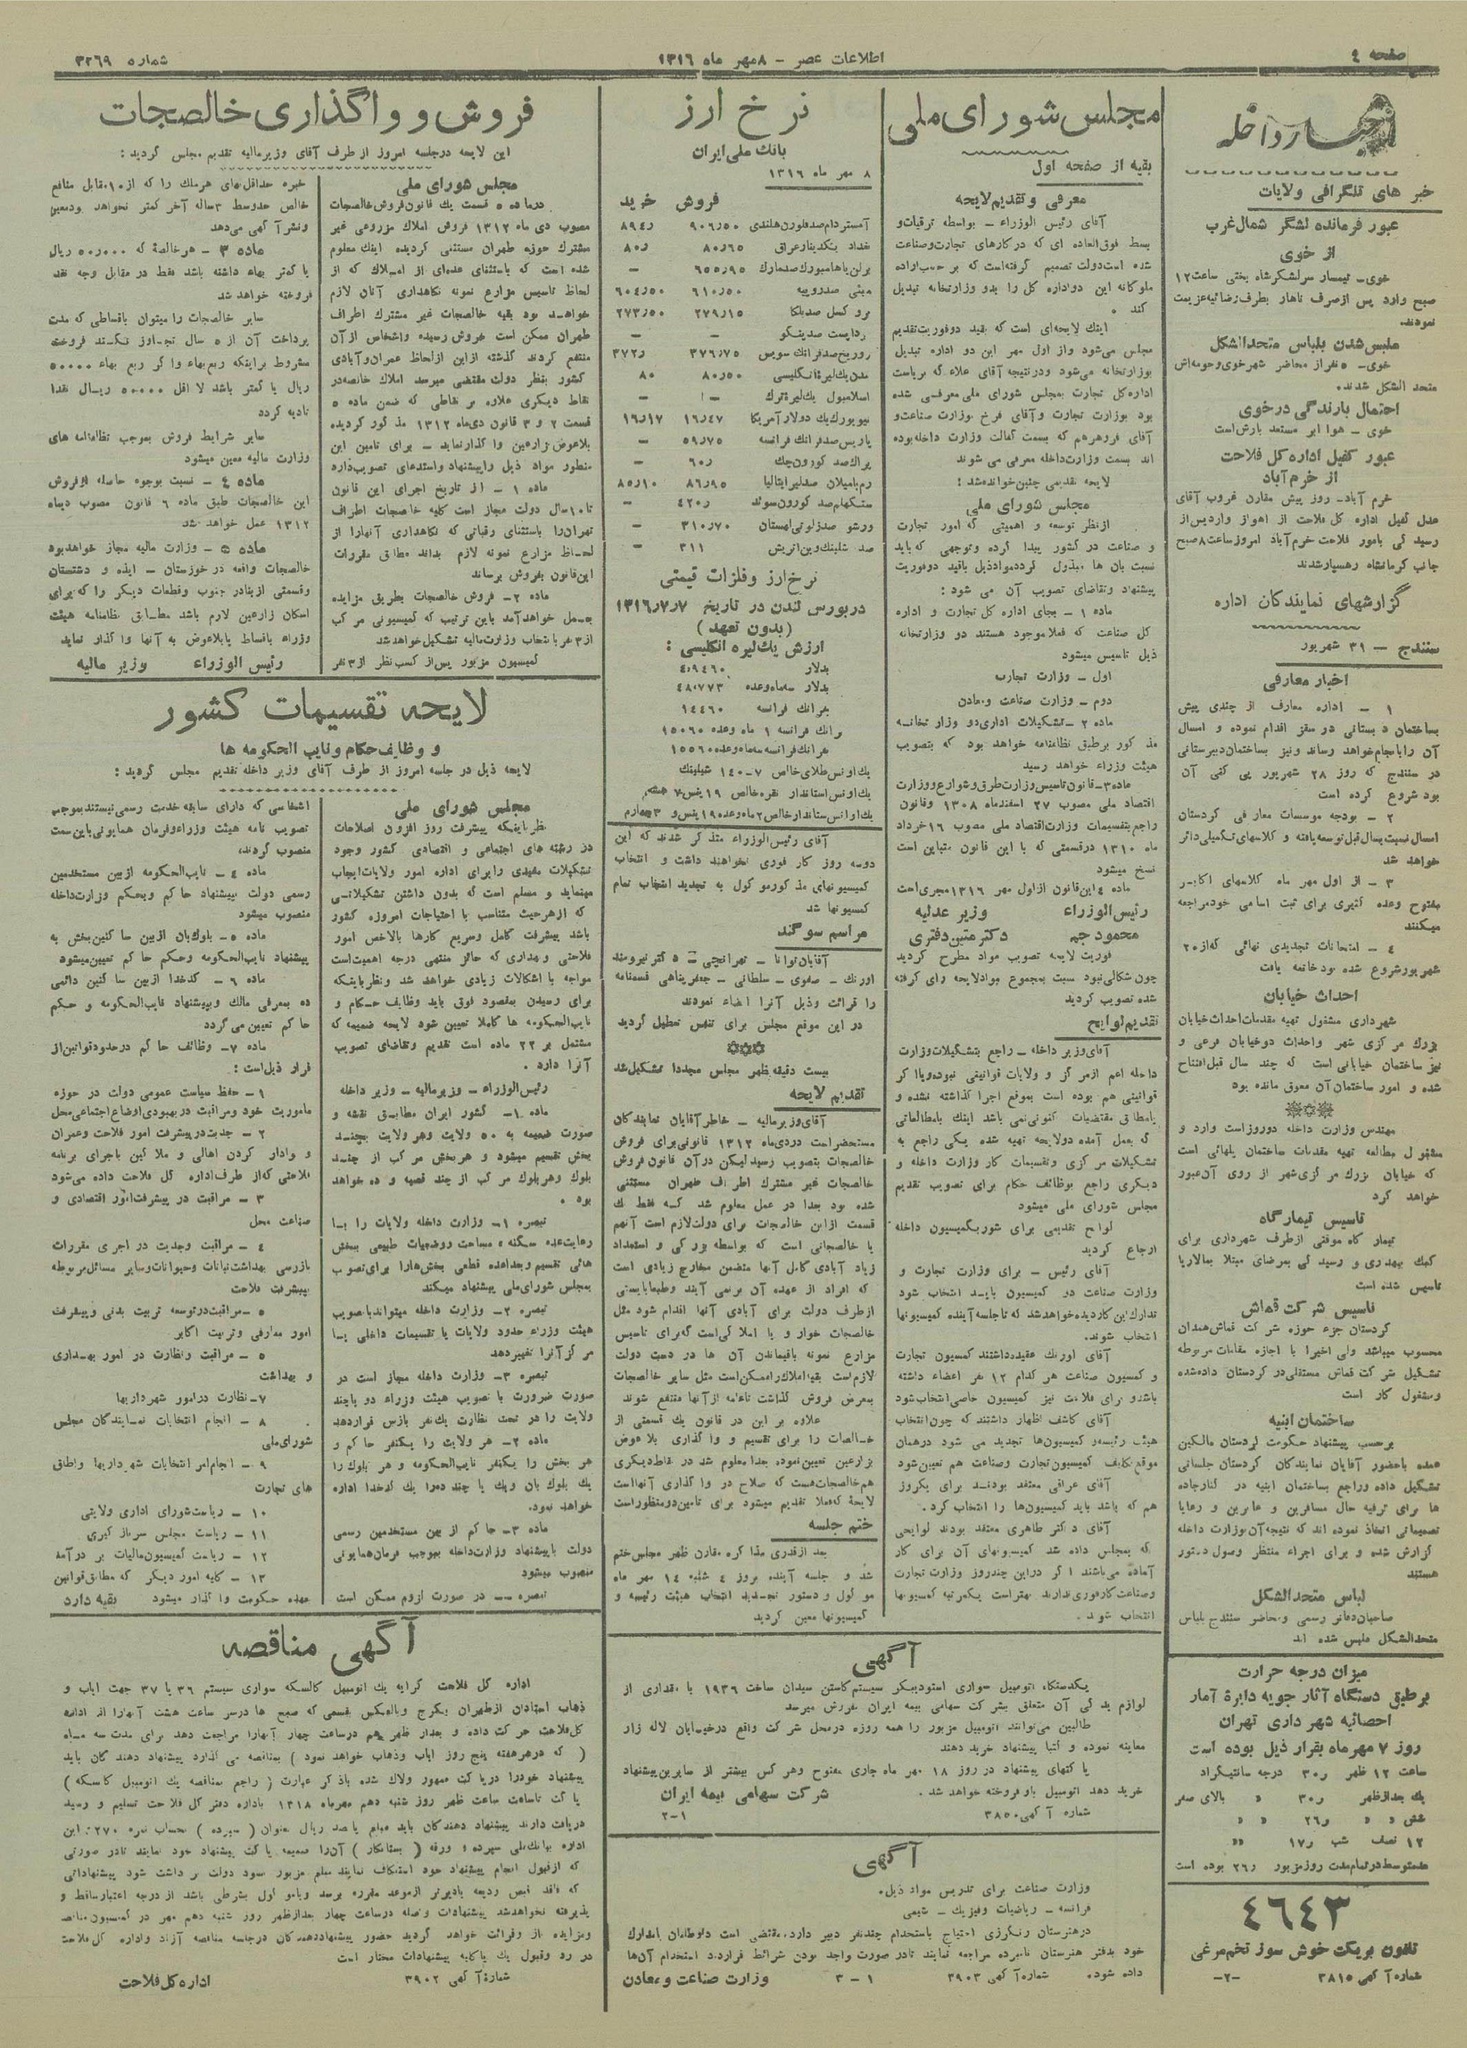 صفحه ٤
اطلاعات عصر - ۸ مهر ماه ۱۳۱٦
شماره ۳۲٦۹
اخبار داخله
خبر های تلگرافی ولایات
عبور فرمانده لشگر شمال غرب
از خوی
خوی- تیمسار سرلشکر شاه بختی ساعت ۱۲
صبح وارد پس از صرف ناهار بطرف رضائیه عزیمت
نمودند.
ملبس شدن بلباس متحدالشکل
خوی- ٥ نفر از محاضر شهر خوی و حومه اش
متحد الشکل شدند.
احتمال بارندگی در خوی
خوی - هوا ابر مستعد بارش است
عبور کفیل اداره کل فلاحت
از خرم آباد
خرم آباد- روز پیش مقارن غروب آقای
عدل کفیل اداره کل فلاحت از اهواز وارد پس از
رسید گی بامور فلاحت خرم آباد امروز ساعت ۸ صبح
جانب کرمانشاه رهسپار شدند
گزارشهای نمایندگان اداره
سنندج - ۳۱ شهریور
اخبار معارفی
۱ - اداره معارف از چندی پیش
ساختمان دبستانی در سقز اقدام نموده و امسال
آن را بانجام خواهد رساند و نیز ساختمان دبیرستانی
در سنندج که روز ۲۸ شهریور پی کنی آن
بود شروع کرده است
۲ - بودجه موسسات معارفی کردستان
امسال نسبت بسال قبل توسعه یافته و کلاسهای تکمیلی دائر
خواهد شد
۳ - از اول مهر ماه کلاسهای اکابر
مفتوح وعده کثیری برای ثبت اسامی خود مراجعه
میکنند
٤ - امتحانات تجدیدی نهائی که از ۲۰
شهریور شروع شده بود خاتمه یافت
احداث خیابان
شهرداری مشغول تهیه مقدمات احداث خیابان
بزرك مرکزی شهر واحداث دو خیابان فرعی و
نیز ساختمان خیابانی است که چند سال قبل افتتاح
شده و امور ساختمان آن معوق مانده بود
مهندس وزارت داخله دو روز است وارد و
مشغول مطالعه تهیه مقدمات ساختمان پلهائی است
که خیابان بزرك مرکزی شهر از روی آن عبور
خواهد کرد
تاسیس تیمارگاه
تیمار گاه موقتی از طرف شهرداری برای
کمك بهداری و رسید گی بمرضای مبتلا بمالاریا
تاسیس شده است
تاسیس شرکت قماش
کردستان جزء حوزه شرکت قماش همدان
محسوب میباشد ولی اخیرا با اجازه مقامات مربوطه
تشکیل شرکت قماش مستقلی در کردستان داده شده
ومشغول کار است
ساختمان ابنیه
برحسب پیشنهاد حکومت کردستان مالکین
عمده باحضور آقایان نمایندگان کردستان جلساتی
تشکیل داده و راجع بساختمان ابنیه در کنار جاده
ها برای ترفیه حال مسافرین و عابرین و رعایا
تصمیماتی اتخاذ نموده اند که نتیجه آن بوزارت داخله
گزارش شده و برای اجراء منتظر وصول دستور
هستند
لباس متحدالشکل
صاحبان دفاتر رسمی و محاضر سنندج بلباس
متحدالشکل ملبس شده اند
میزان درجه حرارت
برطبق دستگاه آثار جویه دایرة آمار
احصائیه شهرداری تهران
روز ۷ مهرماه بقرار ذیل بوده است
ساعت ۱۲ ظهر ر۳۰ درجه سانتیگراد
یك بعدازظهر ر۳۰ » بالای صفر
شش » » ر۲٦ » »
۱۲ نصف شب ر۱۷ »»
حد متوسط در تمام مدت روز مزبور ر۲٦ بوده است
٤٦٤۳
تلفون بریکت خوش سوز تخم مرغی
شماره آگهی ۳۸۱٥ -۲-
مجلس شورای ملی
بقیه از صفحه اول
معرفی و تقدیم لایحه
آقای رئیس الوزراء - بواسطه ترقیات و
بسط فوق العاده ای که در کارهای تجارت و صناعت
شده است دولت تصمیم گرفته است که بر حسب اراده
ملوکانه این دو اداره کل را بدو وزارتخانه تبدیل
کند .
اینك لایحه ای است که بقید دو فوریت تقدیم
مجلس می شود و از اول مهر این دو اداره تبدیل
بوزارتخانه می شود و در نتیجه آقای علاء که بریاست
اداره کل تجارت بمجلس شورای ملی معرفی شده
بود بوزارت تجارت و آقای فرخ بوزارت صناعت و
آقای فروهر هم که بسمت کفالت وزارت داخله بوده
اند بسمت وزارت داخله معرفی می شوند
لایحه تقدیمی چنین خوانده شد :
مجلس شورای ملی
از نظر توسعه و اهمیتی که امور تجارت
و صناعت در کشور پیدا کرده و توجهی که باید
نسبت بان ها مبذول گردد مواد ذیل باقید دو فوریت
پیشنهاد و تقاضای تصویب آن می شود :
ماده ۱ - بجای اداره کل تجارت و اداره
کل صناعت که فعلا موجود هستند دو وزارتخانه
ذیل تاسیس میشود
اول - وزارت تجارت
دوم - وزارت صناعت و معادن
ماده ۲ - تشکیلات اداری دو وزارتخانه
مذ کور بر طبق نظامنامه خواهد بود که بتصویب
هیئت وزراء خواهد رسید
ماده ۳- قانون تاسیس وزارت طرق و شوارع و وزارت
اقتصاد ملی مصوب ۲۷ اسفند ماه ۱۳۰۸ و قانون
راجع بتقسیمات وزارت اقتصاد ملی مصوب ۱٦ خرداد
ماه ۱۳۱۰ در قسمتی که با این قانون متباین است
نسخ میشود
ماده ٤ این قانون از اول مهر ۱۳۱٦ مجری است
رئیس الوزراء وزیر عدلیه
محمود جم دکتر متین دفتری
فوریت لایحه تصویب مواد مطرح گردید
چون اشکالی نبود نسبت بمجموع مواد لایحه رای گرفته
شده تصویب گردید
تقدیم لوایح
آقای وزیر داخله - راجع بتشکیلات وزارت
داخله اعم از مرکز و ولایات قوانینی نبوده و یا اگر
قوانینی هم بوده است بموقع اجرا گذاشته نشده و
یا مطابق مقتضیات کنونی نمی باشد اینك بامطالعاتی
که بعمل آمده دو لایحه تهیه شده یکی راجع به
تشکیلات مرکزی و تقسیمات کار وزارت داخله و
دیگری راجع بوظائف حکام برای تصویب تقدیم
مجلس شورای ملی میشود
لوایح تقدیمی برای شور بکمیسیون داخله
ارجاع گردید
آقای رئیس - برای وزارت تجارت و
وزارت صناعت دو کمیسیون باید انتخاب شود
تدارك این کار دیده خواهد شد که تا جلسه آینده کمیسیونها
انتخاب شوند.
آقای اورنك عقیده داشتند کمسیون تجارت
و کمسیون صناعت هر کدام ۱۲ نفر اعضاء داشته
باشد و برای فلاحت نیز کمسیون خاصی انتخاب شود
آقای کاشف اظهار داشتند که چون انتخاب
هیئت رئیسه و کمیسیون ها تجدید می شود در همان
موقع تکلیف کمیسیون تجارت و صناعت هم تعیین شود
آقای عراقی معتقد بودند برای یکروز
هم که باشد باید کمیسیون ها را انتخاب کرد.
آقای دکتر طاهری معتقد بودند لوایحی
که بمجلس داده شد کمیسیونهای آن برای کار
آماده می باشند اگر در این چند روز وزارت تجارت
وصناعت کار فوری ندارند بهتر است یکمرتبه کمسیونها
انتخاب شوند.
نرخ ارز
بانك ملی ایران
۸ مهر ماه ۱۳۱٦
فروش خرید
آمستردام صد فلورن هلندی ۹۰٦٫٥۰ ۸۹٤ر
بغداد یکدینار عراق ۸۰٫٦٥ ۸۰ر
برلن یا هامبورك صد مارك ٦٥٥٫۹٥ -
بمبئی صد روپیه ٦۱۰٫٥۰ ٦۰٤٫٥۰
بروکسل صد بلگا ۲۷۹٫۱٥ ۲۷۳٫٥۰
بوداپست صد پنگو - -
زوریخ صد فرانك سویس ۳۷٦٫۷٥ ۳۷۲ر
لندن یك لیرۀ انگلیسی ۸۰٫٥۰ ۸۰
اسلامبول یك لیرۀ ترك - -
نیویورك یك دولار آمریکا ۱٦٫٤۷ ۱٦٫۱۷
پاریس صد فرانك فرانسه ٥۹٫۷٥ -
پراك صد کورون چك ٦۰ر -
رم یا میلان صد لیر ایتالیا ۸٦٫۹٥ ۸٥٫۱۰
ستکهلم صد کورون سوئد ٤۲۰ر -
ورشو صد زلوتی لهستان ۳۱۰٫۷۰ -
صد شلینك وین اتریش ۳۱۱ -
نرخ ارز و فلزات قیمتی
در بورس لندن در تاریخ ۱۳۱٦٫۷٫۷
(بدون تعهد)
ارزش یك لیره انگلیسی :
بدلار ٤٫۹٤٦۰
بدلار سه ماه وعده ٤۸۰۷۷۳
بفرانك فرانسه ۱٤٤٦۰
فرانك فرانسه ۱ ماه وعده ۱٥۰٦۰
فرانك فرانسه سه ماه وعده ۱٥٥٦۰
یك اونس طلای خالص ۷-۱٤۰ شیلینك
یك اونس استاندار نقره خالص ۱۹ پنس ۷ هشتم
یك اونس ستاندار خالص ۲ ماه وعده ۱۹ پنس و ۳ چهارم
آقای رئیس الوزراء متذ کر شدند که این
دو سه روز کار فوری نخواهند داشت و انتخاب
کمیسیونهای مذ کور موکول به تجدید انتخاب تمام
کمسیونها شد
مراسم سوگند
آقایان توانا - تهرانچی - دکتر نیرومند
اورنك - صفوی - سلطانی - جعفر پناهی قسمنامه
را قرائت و ذیل آنرا امضاء نمودند
در این موقع مجلس برای تنفس تعطیل گردید
بیست دقیقه بظهر مجلس مجددا تشکیل شد
تقدیم لایحه
آقای وزیر مالیه - خاطر آقایان نمایندگان
مستحضر است در دی ماه ۱۳۱۲ قانونی برای فروش
خالصجات بتصویب رسید لیکن در آن قانون فروش
خالصجات غیر مشترك اطراف طهران مستثنی
شده بود بعدا در عمل معلوم شد که فقط يك
قسمت از این خالصجات برای دولت لازم است آنهم
یا خالصجاتی است که بواسطه بزرگی و استعداد
زیاد آبادی کامل آنها متضمن مخارج زیادی است
که افراد از عهده آن برنمی آیند و طبعا بایستی
از طرف دولت برای آبادی آنها اقدام شود مثل
خالصجات خوار و یا املاکی است که برای تاسیس
مزارع نمونه باقیماندن آن ها در دست دولت
لازم است بقیه املاك را ممکن است مثل سایر خالصجات
بمعرض فروش گذاشت تا عامه از آنها منتفع شوند
علاوه بر این در قانون يك قسمتی از
خالصات را برای تقسیم و وا گذاری بلاعوض
بزارعین تعیین نموده بعدا معلوم شد در نقاط دیگری
هم خالصجات هست که صلاح در وا گذاری آنها است
لایحۀ که فعلا تقدیم میشود برای تامین دو منظور است
ختم جلسه
بعد از قدری مذاکره مقارن ظهر مجلس ختم
شد و جلسه آینده بروز ٤ شنبه ۱٤ مهر ماه
موکول و دستور تجدید انتخاب هیئت رئیسه و
کمیسیونها معین گردید
آگهی
یکدستگاه اتومبیل سواری استودبیکر سیستم کاستن سیدان ساخت ۱۹۳٦ با مقداری از
لوازم یدکی آن متعلق بشرکت سهامی بیمه ایران بفروش میرسد
طالبین می توانند اتومبیل مزبور را همه روزه در محل شرکت واقع در خیابان لاله زار
معاینه نموده و کتبا پیشنهاد خرید دهند
پاکتهای پیشنهاد در روز ۱۸ مهر ماه جاری مفتوح و هر کس بیشتر از سایرین پیشنهاد
خرید دهد اتومبیل باو فروخته خواهد شد. شرکت سهامی بیمه ایران
شماره آگهی ۳۸٥۰ ۲-۱
آگهی
وزارت صناعت برای تدریس مواد ذیل،
فرانسه - ریاضیات و فیزیك - شیمی
در هنرستان رنگرزی احتیاج باستخدام چند نفر دبیر دارد. مقتضی است داوطلبان بامدارك
خود بدفتر هنرستان نامبرده مراجعه نمایند تا در صورت واجد بودن شرائط قرارداد استخدام آن ها
داده شود. شماره آگهی ۳۹۰۳ ۳-۱ وزارت صناعت و معادن
فروش و واگذاری خالصجات
این لایحه در جلسه امروز از طرف آقای وزیر مالیه تقدیم مجلس گردید :
مجلس شورای ملی
در ماده ٥ قسمت یك قانون فروش خالصجات
مصوب دی ماه ۱۳۱۲ فروش املاك مزروعی غیر
مشترك حوزه طهران مستثنی گردیده اینك معلوم
شده است که باستثنای عده ای از املاك که از
لحاظ تاسیس مزارع نمونه نگاهداری آنان لازم
خواهد بود بقیه خالصجات غیر مشترك اطراف
طهران ممکن است بفروش رسیده و اشخاص از آن
منتفع گردند گذشته از این از لحاظ عمران و آبادی
کشور بنظر دولت مقتضی میرسد املاك خالصه در
نقاط دیگری علاوه بر نقاطی که ضمن ماده ٥
قسمت ۲ و ۳ قانون دی ماه ۱۳۱۲ مذکور گردیده
بلاعوض بزارعین وا گذار نماید - برای تامین این
منظور مواد ذیل را پیشنهاد و استدعای تصویب دارد
ماده ۱ - از تاریخ اجرای این قانون
تا ۱۰ سال دولت مجاز است کلیه خالصجات اطراف
تهران را باستثنای رقباتی که نگاهداری آنها را از
لحاظ مزارع نمونه لازم بداند مطابق مقررات
این قانون بفروش برساند
ماده ۲- فروش خالصجات بطریق مزایده
بعمل خواهد آمد باین ترتیب که کمیسیونی مرکب
از ۳ نفر با انتخاب وزارت مالیه تشکیل خواهد شد
کمیسیون مزبور پس از کسب نظر از ۳ نفر
خبره حداقل بهای هر ملك را که از ۱۰ مقابل منافع
خالص حد وسط ۳ ساله آخر کمتر نخواهد بود معین
و نشر آگهی می دهد
ماده ۳ - هر خالصۀ که ٥۰٫۰۰۰ ریال
یا کمتر بهاء داشته باشد فقط در مقابل وجه نقد
فروخته خواهد شد
سایر خالصجات را میتوان باقساطی که مدت
پرداخت آن از ٥ سال تجاوز نکند فروخت
مشروط براینکه ربع بهاء و اگر ربع بهاء ٥۰۰۰۰
ریال یا کمتر باشد لا اقل ٥۰۰۰۰ ریال نقدا
تادیه گردد
سایر شرایط فروش بموجب نظامنامه های
وزارت مالیه معین میشود
ماده ٤ - نسبت بوجوه حاصله از فروش
این خالصجات طبق ماده ٦ قانون مصوب دیماه
۱۳۱۲ عمل خواهد شد
ماده ٥ - وزارت مالیه مجاز خواهد بود
خالصجات واقعه در خوزستان - ایذه و دشتستان
وقسمتی از بنادر جنوب و قطعات دیگر را که برای
اسکان زارعین لازم باشد مطابق نظامنامه هیئت
وزراء باقساط یا بلاعوض به آنها واگذار نماید
رئیس الوزراء وزیر مالیه
لایحه تقسیمات کشور
و وظایف حکام و نایب الحکومه ها
لایحه ذیل در جلسه امروز از طرف آقای وزیر داخله تقدیم مجلس گردید :
مجلس شورای ملی
نظر باینکه پیشرفت روز افزون اصلاحات
در رشته های اجتماعی و اقتصادی کشور وجود
تشکیلات مفیدی را برای اداره امور ولایات ایجاب
مینماید و مسلم است که بدون داشتن تشکیلاتی
که از هر حیث متناسب با احتیاجات امروزه کشور
باشد پیشرفت کامل و سریع کارها بالاخص امور
فلاحتی و بهداری که حائز منتهی درجه اهمیت است
مواجه با اشکالات زیادی خواهد شد و نظر باینکه
برای رسیدن بمقصود فوق باید وظایف حکام و
نایب الحکومه ها کاملا تعیین شود لایحه ضمیمه که
مشتمل بر ۲۲ ماده است تقدیم و تقاضای تصویب
آنرا دارد .
رئیس الوزراء - وزیر مالیه - وزیر داخله
ماده ۱- کشور ایران مطابق نقشه و
صورت ضمیمه به ٥۰ ولایت و هر ولایت بچند
بخش تقسیم میشود و هر بخش مرکب از چند
بلوك و هر بلوك مرکب از چند قصبه و ده خواهد
بود .
تبصره ۱- وزارت داخله ولایات را با
رعایت عده سکنه و مساحت و وضعیات طبیعی ببخش
هائی تقسیم و بعدا عده قطعی بخش ها را برای تصویب
بمجلس شورای ملی پیشنهاد میکند
تبصره ۲- وزارت داخله میتواند با تصویب
هیئت وزراء حدود ولایات یا تقسیمات داخلی یا
مرکز آنرا تغییر دهد
تبصره ۳- وزارت داخله مجاز است در
صورت ضرورت با تصویب هیئت وزراء دو یا چند
ولایت را در تحت نظارت یك نفر بازرس قرار دهد
ماده ۲- هر ولایت را یکنفر حاکم و
هر بخش را یکنفر نایب الحکومه و هر بلوك را
یك بلوك بان و یك یا چند ده را یك کدخدا اداره
خواهد نمود.
ماده ۳- حاکم از بین مستخدمین رسمی
دولت با پیشنهاد وزارت داخله بموجب فرمان همایونی
منصوب میشود
تبصره - در صورت لزوم ممکن است
اشخاصی که دارای سابقه خدمت رسمی نیستند بموجب
تصویب نامه هیئت وزراء و فرمان همایونی باین سمت
منصوب گردند،
ماده ٤ - نایب الحکومه از بین مستخدمین
رسمی دولت بپیشنهاد حاکم و بحکم وزارت داخله
منصوب میشود
ماده ٥- بلوك بان از بین ساکنین بخش به
پیشنهاد نایب الحکومه و حکم حاکم تعیین میشود
ماده ٦ - کدخدا از بین ساکنین دائمی
ده بمعرفی مالك و پیشنهاد نایب الحکومه و حکم
حاکم تعیین می گردد
ماده ۷- وظائف حاکم در حدود قوانین از
قرار ذیل است :
۱- حفظ سیاست عمومی دولت در حوزه
ماموریت خود و مراقبت در بهبودی اوضاع اجتماعی محل
۲ - جدیت در پیشرفت امور فلاحت و عمران
و وادار کردن اهالی و ملاکین باجرای برنامه
فلاحتی که از طرف اداره کل فلاحت داده می شود
۳ - مراقبت در پیشرفت امور اقتصادی و
صناعت محل
٤ - مراقبت وجدیت در اجرای مقررات
بازرسی بهداشت نباتات و حیوانات و سایر مسائل مربوطه
بپیشرفت فلاحت
٥ - مراقبت در توسعه تربیت بدنی و پیشرفت
امور معارفی و تربیت اکابر
٥ - مراقبت و نظارت در امور بهداری
و بهداشت
۷- نظارت در امور شهرداریها
۸ - انجام انتخابات نمایندگان مجلس
شورای ملی
۹ - انجام امر انتخابات شهرداریها و اطاق
های تجارت
۱۰ - ریاست شورای اداری ولایتی
۱۱ - ریاست مجلس سربازگیری
۱۲ - ریاست کمیسیون مالیات بر درآمد
۱۳ - کلیه امور دیگر که مطابق قوانین
بعهده حکومت واگذار میشود بقیه دارد
آگهی مناقصه
اداره کل فلاحت کرایه یك اتومبیل کالسکه سواری سیستم ۳٦ یا ۳۷ جهت ایاب و
ذهاب استادان از طهران بکرج و بالعکس بقسمی که صبح ها در سر ساعت هشت آنها را از اداره
کل فلاحت حرکت داده و بعد از ظهر هم در ساعت چهار آنها را مراجعت دهد برای مدت سه ماه
( که در هر هفته پنج روز ایاب و ذهاب خواهد نمود ) بمناقصه می گذارد پیشنهاد دهند گان باید
پیشنهاد خود را در پاکت ممهور و لاك شده با ذکر عبارت ( راجع بمناقصه یك اتومبیل کالسکه )
تا ساعت ظهر روز شنبه دهم مهرماه ۱۳۱۸ باداره دفتر کل فلاحت تسلیم و رسید
دریافت دارند پیشنهاد دهندگان باید مبلغ پانصد ریال بعنوان ( سپرده ) بحساب نمره ۲۷۰ این
اداره ببانك ملی سپرده و ورقه ( بستانکار ) آن را ضمیمه پاکت پیشنهاد خود نمایند تا در صورتی
که از قبول انجام پیشنهاد خود استنکاف نمایند مبلغ مزبور بسود دولت برداشت شود پیشنهاداتی
که فاقد قبض ودیعه یا دیرتر از موعد مقرره برسد و یا مو کول بشرطی باشد از درجه اعتبار ساقط و
پذیرفته نخواهد شد پیشنهادات واصله در ساعت چهار بعد از ظهر روز شنبه دهم مهر در کمیسیون مناقصه
ومزایده باز و قرائت خواهد گردید حضور پیشنهاد دهندگان در جلسه مناقصه آزاد و اداره کل فلاحت
در رد و قبول یك یا کلیه پیشنهادات مختار است
شماره آگهی ۳۹۰۲ اداره کل فلاحت